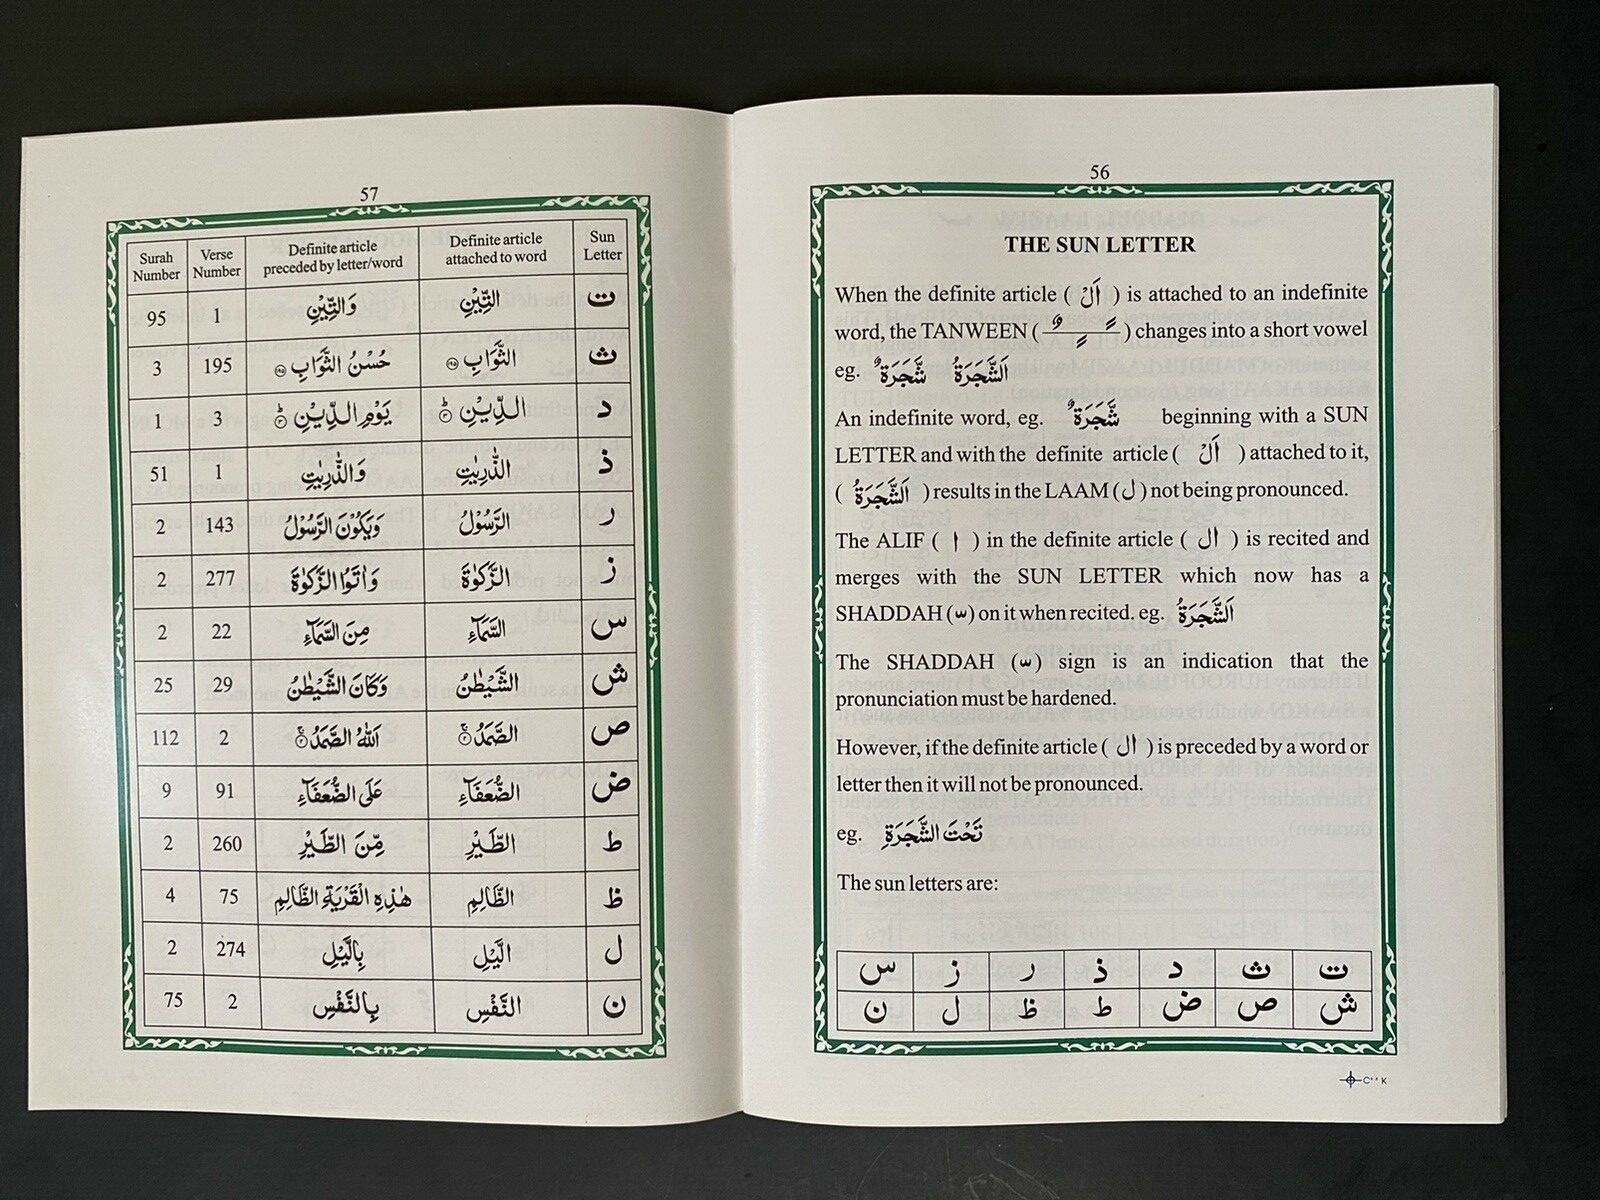 56
THE SUN LETTER
When the definite article ( اَلْ ) is attached to an indefinite
word, the TANWEEN ( ـًـٍـٌ ) changes into a short vowel
eg. شَّجَرَةٌ اَلشَّجَرَةُ
An indefinite word, eg. شَّجَرَةٌ beginning with a SUN
LETTER and with the definite article ( اَلْ ) attached to it,
( اَلشَّجَرَةُ ) results in the LAAM ( ل ) not being pronounced.
The ALIF ( ا ) in the definite article ( ال ) is recited and
merges with the SUN LETTER which now has a
SHADDAH ( ّ ) on it when recited. eg. اَلشَّجَرَةُ
The SHADDAH ( ّ ) sign is an indication that the
pronunciation must be hardened.
However, if the definite article ( ال ) is preceded by a word or
letter then it will not be pronounced.
eg. تَحْتَ الشَّجَرَةِ
The sun letters are:
ت ث د ذ ر ز س
ش ص ض ط ظ ل ن
C K
57
Sun Letter Definite article attached to word Definite article preceded by letter/word Verse Number Surah Number
ت التِّيْنِ وَالتِّيْنِ 1 95
ث الثَّوَابِ ۝١٩٥ حُسْنُ الثَّوَابِ ۝١٩٥ 195 3
د الدِّيْنِ ۝٣ؕ يَوْمِ الدِّيْنِ ۝٣ؕ 3 1
ذ الذّٰرِيٰتِ وَالذّٰرِيٰتِ 1 51
ر الرَّسُوْلُ وَيَكُوْنَ الرَّسُوْلُ 143 2
ز الزَّكٰوةَ وَاٰتَوُا الزَّكٰوةَ 277 2
س السَّمَآءِ مِنَ السَّمَآءِ 22 2
ش الشَّيْطٰنُ وَكَانَ الشَّيْطٰنُ 29 25
ص الصَّمَدُ ۝٢ۚ اَللّٰهُ الصَّمَدُ ۝٢ۚ 2 112
ض الضُّعَفَآءِ عَلَى الضُّعَفَآءِ 91 9
ط الطَّيْرِ مِّنَ الطَّيْرِ 260 2
ظ الظَّالِمِ هٰذِهِ الْقَرْيَةِ الظَّالِمِ 75 4
ل الَّيْلِ بِالَّيْلِ 274 2
ن النَّفْسِ بِالنَّفْسِ 2 75